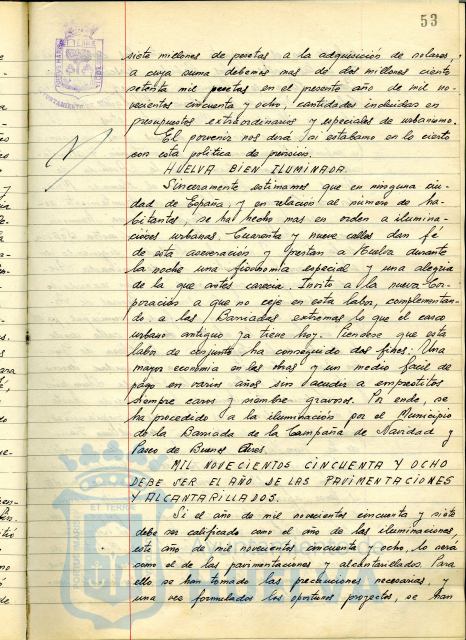 53
siete millones de pesetas a la adquisición de solares,
a cuya suma debemos mas de dos millones ciento
setenta mil pesetas en el presente año de mil no-
vecientos cincuenta y ocho, cantidades incluidas en
presupuestos extraordinarios y especiales de urbanismo.
El porvenir nos dirá si estabamo en lo cierto
con esta politica de previsión.
HUELVA BIEN ILUMINADA.
Sinceramente estimamos que en ninguna ciu-
dad de España, y en relación al número de ha-
bitantes, se ha hecho mas en orden a ilumina-
ciones urbanas. Cuarenta y nueve calles dan fé
de esta aseveración y prestan a Huelva durante
la noche una fisonomia especial y una alegria
de la que antes carecia. Invito a la nueva Cor-
poración a que no ceje en esta labor, complementan-
do a las Barriadas extremas lo que el casco
urbano antiguo ya tiene hoy. Piensese que esta
labor de conjunto ha conseguido dos fines. Una
mayor economia en las obras y un medio facil de
pago en varios años sin acudir a emprestitos
siempre caros y siempre gravosos. Por ende, se
ha precedido a la iluminación por el Municipio
de la Barriada de la Campaña de Navidad y
Paseo de Buenos Aires.
MIL NOVECIENTOS CINCUENTA Y OCHO
DEBE SER EL AÑO DE LAS PAVIMENTACIONES
Y ALCANTARILLADOS.
Si el año de mil novecientos cincuenta y siete
debe ser calificado como el año de las iluminaciones,
este año de mil novecientos cincuenta y ocho, lo será
como el de las pavimentaciones y alcantarillados. Para
ello se han tomado las precauciones necesarias, y
una vez formulados los oportunos proyectos, se han